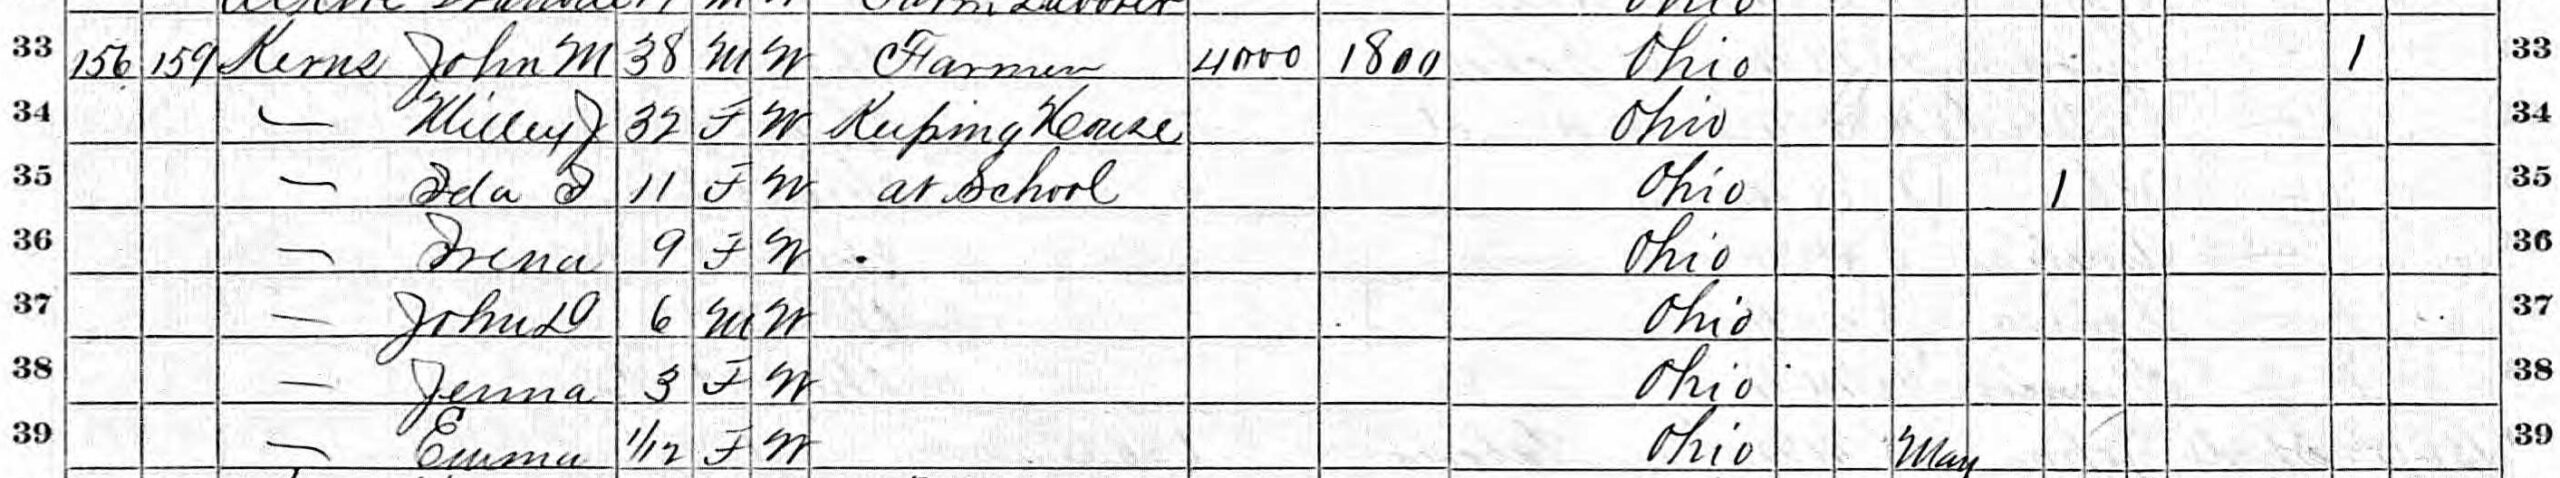 Farm Laborer Ohio
33 156 159 Kerns John M 38 M W Farmer 4000 1800 Ohio 1 33
34 — Milley J 32 F W Keeping House Ohio 34
35 — Ida I 11 F W at School Ohio 1 35
36 — Irena 9 F W Ohio 36
37 — John D 6 M W Ohio 37
38 — Jenna 3 F W Ohio 38
39 — Emma 1/12 F W Ohio May 39